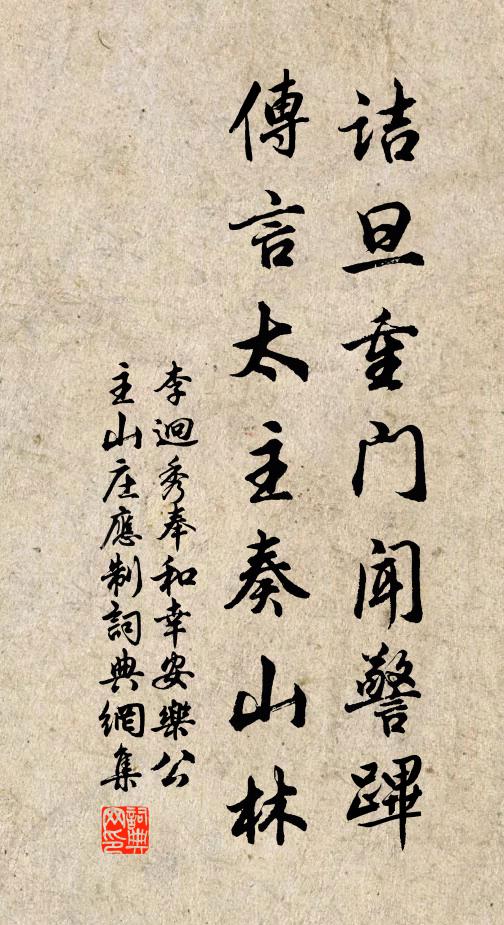 诘旦重门闻警蹕
傳言太主奏山林
李迥秀奉和幸安樂公
主山庄應制詞典網集
詞典
网印